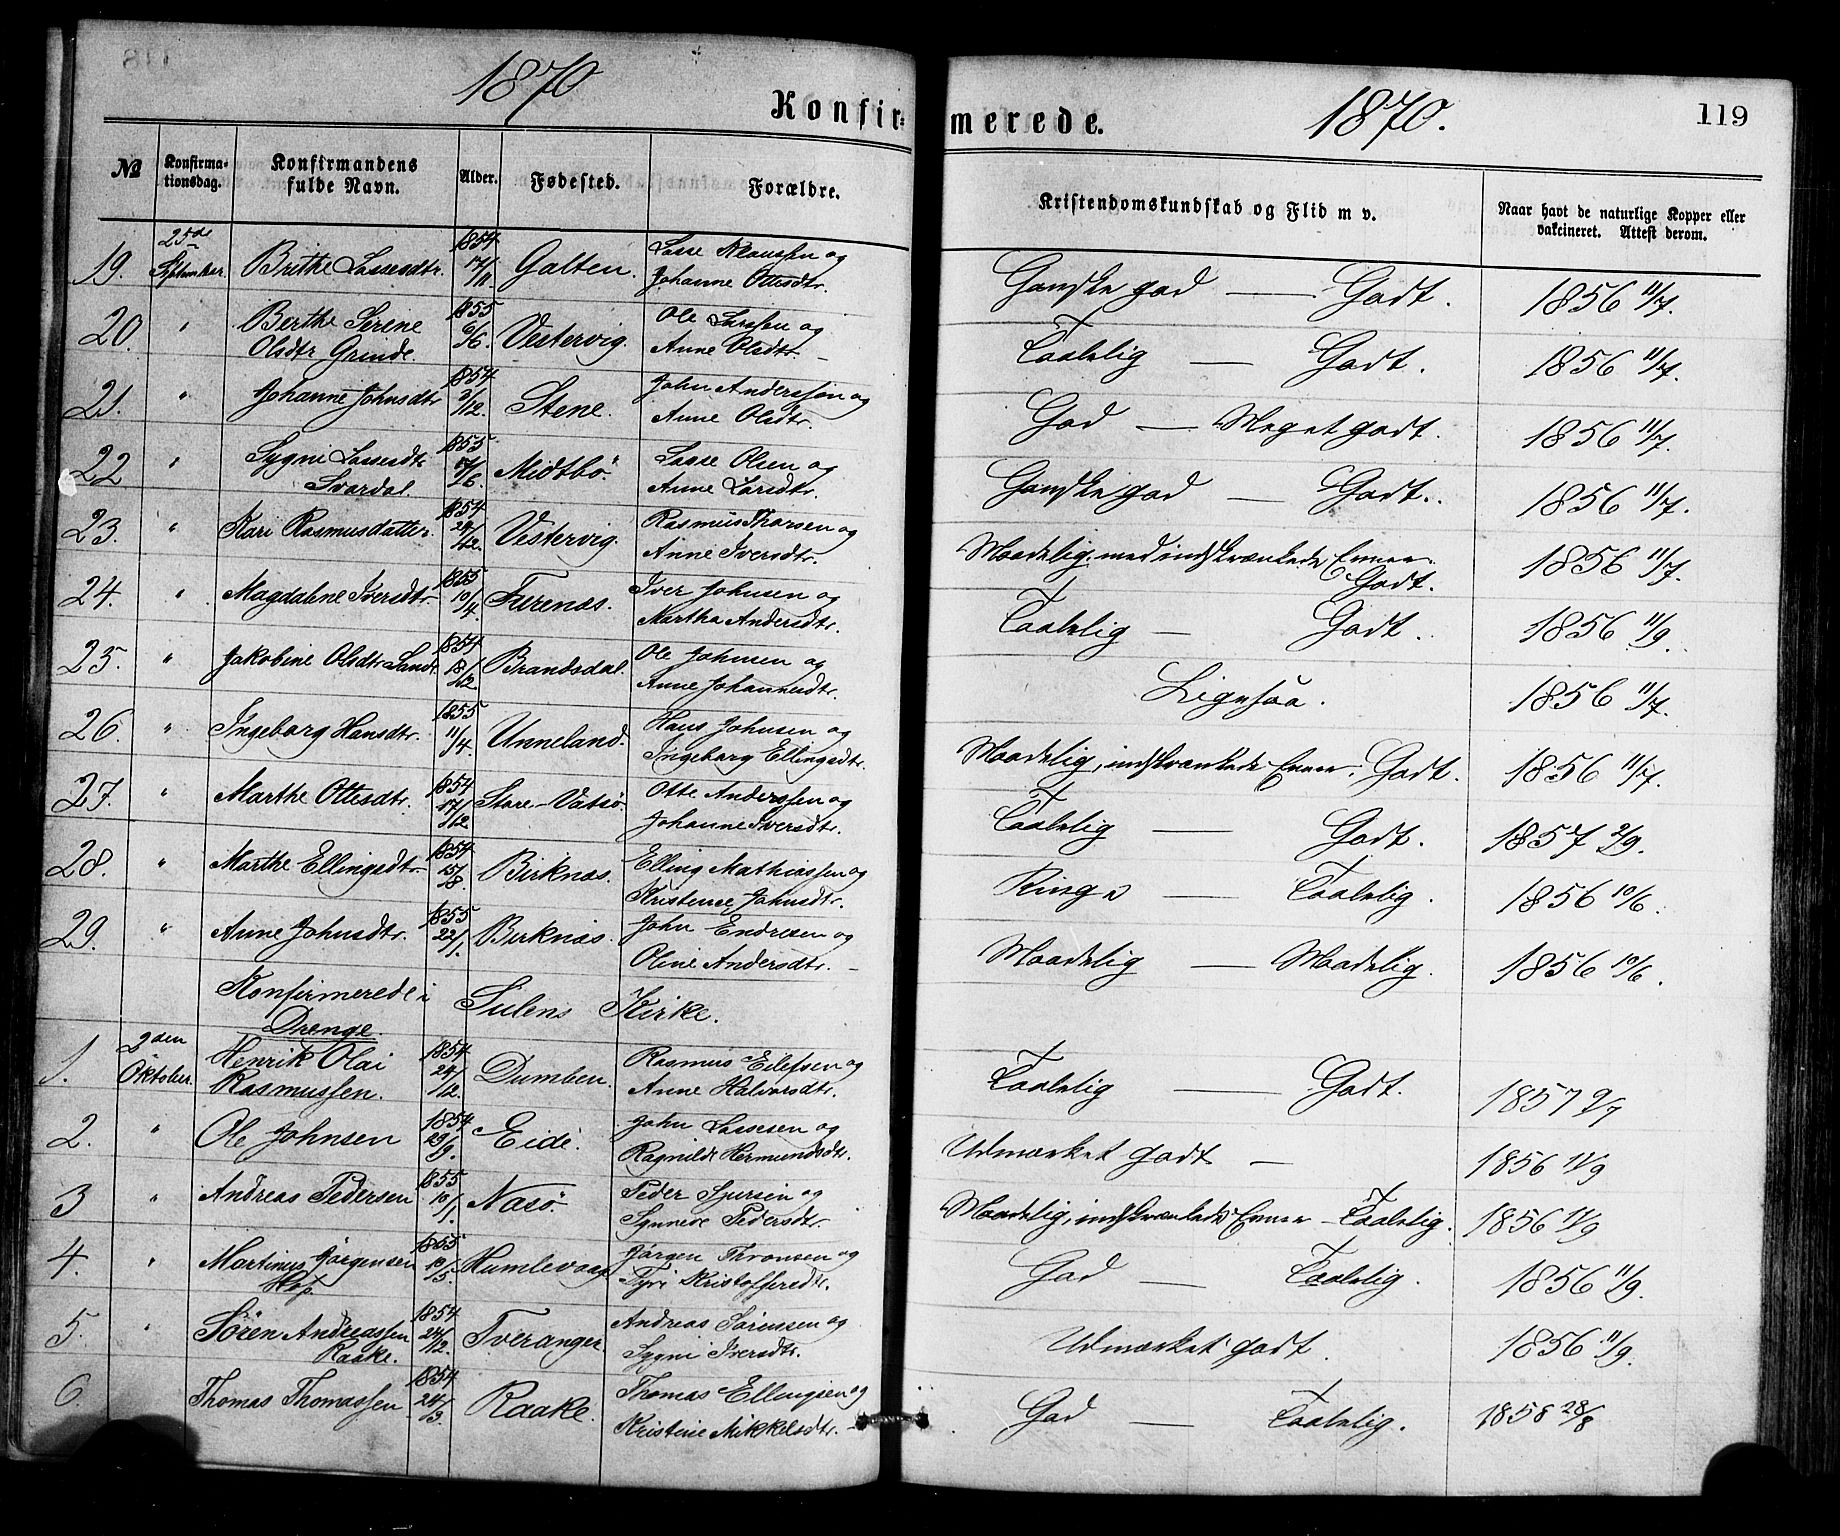 1870
Konfir=
merede.
1870.
119
№
Konfirma-
tionsdag.
Konfirmandens
fulde Navn.
Alder.
Fødested.
Forældre.
Kristendomskundskab og Flid m v.
Naar havt de naturlige Kopper eller
vakcineret. Attest derom.
19. 25de September. Brithe Lassesdtr. 1854 17/11 Galten. Lasse Klaussen og
Johanne Ottesdtr. Ganske god — Godt. 1856 11/7.
20. " Berthe Serine 1855 Vestervig. Ole Larssen og
Olsdtr Grinde. 6/6. Anne Olsdtr. — Taalelig — Godt. 1856 11/7.
21. " Johanne Johnsdtr 1854 3/12. Stene. John Anderssen og
Anne Olsdtr. God — Meget godt. 1856 11/7.
22 " Sygni Lassesdtr 1855 Midtbö. Lasse Olsen og
Svardal. 17/6. Anne Larsdtr. Ganske god — Godt. 1856 11/7.
23. " Kari Rasmusdatter. 1854 29/12. Vestervig. Rasmus Tharsen og
Anne Iversdtr. Maadelig, med indskrænkede Evner.
Godt. 1856 11/7.
24. " Magdalene Iversdtr. 1855 10/4. Furenæs. Iver Johnsen og
Martha Andersdtr. Taalelig — Godt. 1856 11/9.
25. " Jakobine Olsdtr Sandr. 1854 18/12 Brandsdal. Ole Johnsen og
Anne Johannesdtr. Ligesaa. 1856 11/7.
26. " Ingeborg Hansdtr. 1855 11/4. Unneland. Hans Johnsen og
Ingeborg Ellingsdtr. Maadelig, indskrænkede Evner. Godt. 1856 11/7.
27. " Marthe Ottesdtr. 1854 17/12. Store-Vatsö. Otte Anderssen og
Johanne Iversdtr. Taalelig — Godt. 1857 2/9.
28. " Marthe Ellingsdtr. 1854 15/8. Birknæs. Elling Mathiassen og
Kristence Johnsdtr. Ringe — Taalelig. 1856 10/6.
29. " Anne Johnsdtr. 1855 22/1. Birknæs. John Endresen og
Oline Andersdtr. — Maadelig — Maadelig. 1856 10/6.
Konfirmerede i Sulens Kirke.
Drenge.
1. 2den Oktober. Henrik Olai 1854 Dumben. Rasmus Eilefsen og
Rasmussen. 24/12. Anne Halvorsdtr. Taalelig — Godt. 1857 9/7
2. " Ole Johnsen 1854 29/9. Eide. John Lassesen og
Ragnilde Hermundsdtr. Udmærket godt — 1856 11/9
3 " Andreas Pedersen 1855 10/1. Nasö. Peder Sjursen og
Synneve Pedersdtr. Maadelig, indskrænkede Evner — Taalelig. 1856 11/9
4. " Martinus Jörgensen 1855 Humlevaag Jörgen Thronsen og
Hop. 10/5. Tyri Kristoffersdtr. God — Taalelig. 1856 11/9.
5. " Sören Andreassen 1854 Tveranger. Andreas Sörensen og
Raake. 24/12. Sygni Iversdtr. Udmærket godt. 1856 11/9.
6. Thomas Thomassen 1854 24/3. Raake. Thomas Ellingsen og
Kristine Mikkelsdtr. — God — Taalelig. 1858 28/8